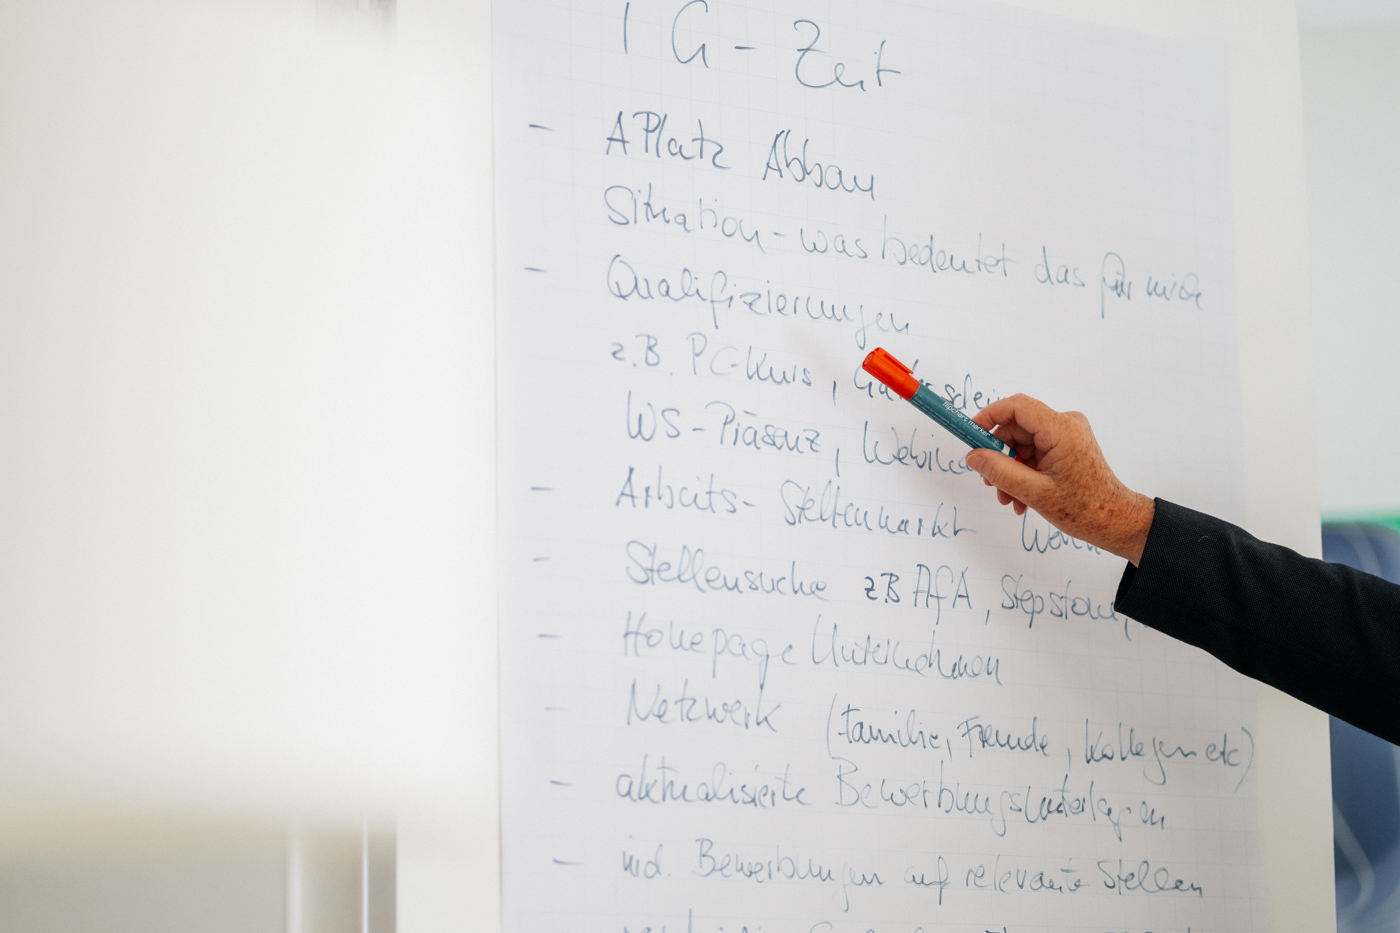 TG-Zeit
- APlatz Abbau
Situation - was bedeutet das für mich
- Qualifizierungen
z.B. PC-Kurs,
WS-Präsenz,
- Arbeits- Stellenmarkt
- Stellensuche z.B AfA, Stepstone,
- Homepage Unternehmen
- Netzwerk (Familie, Freunde, Kollegen etc)
- aktualisierte Bewerbungsunterlagen
- ind. Bewerbungen auf relevante Stellen
flipchart marker